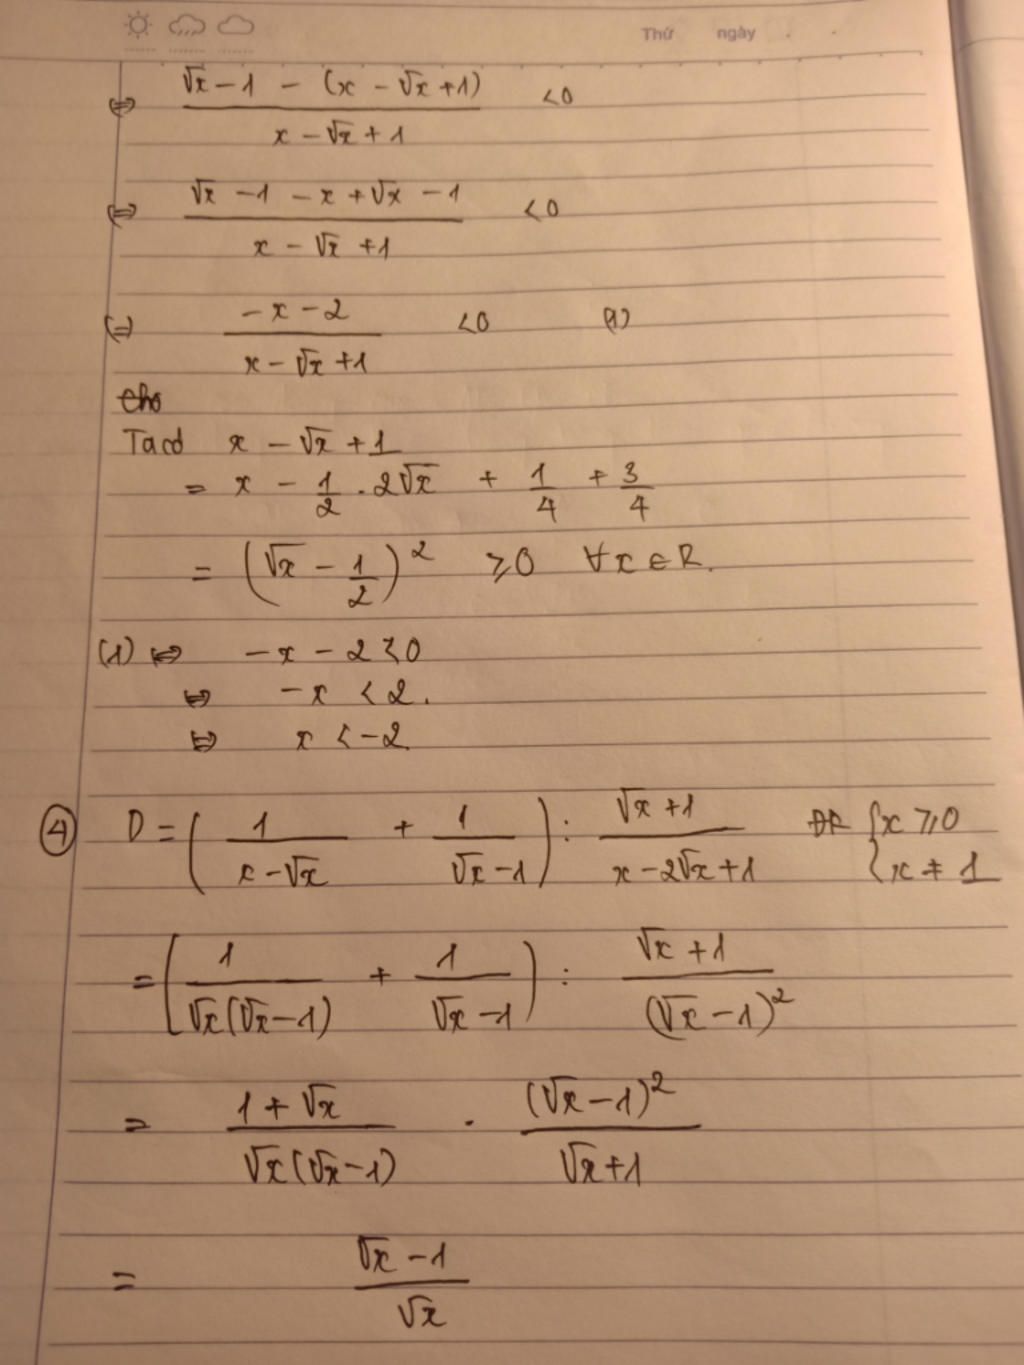 Thứ ngày
⇔ (√x − 1 − (x − √x + 1)) / (x − √x + 1) < 0
⇔ (√x − 1 − x + √x − 1) / (x − √x + 1) < 0
⇔ (−x − 2) / (x − √x + 1) < 0 (1)
Cho
Ta có x − √x + 1
= x − 1/2 . 2√x + 1/4 + 3/4
= (√x − 1/2)² ≥ 0 ∀x ∈ R.
(1) ⇔ −x − 2 < 0
⇔ −x < 2.
⇔ x < −2.
④ D = (1/(x − √x) + 1/(√x − 1)) : (√x + 1)/(x − 2√x + 1) ĐK { x ≥ 0
{ x ≠ 1
= (1/(√x(√x − 1)) + 1/(√x − 1)) : (√x + 1)/(√x − 1)²
= (1 + √x)/(√x(√x − 1)) . (√x − 1)²/(√x + 1)
= (√x − 1)/√x